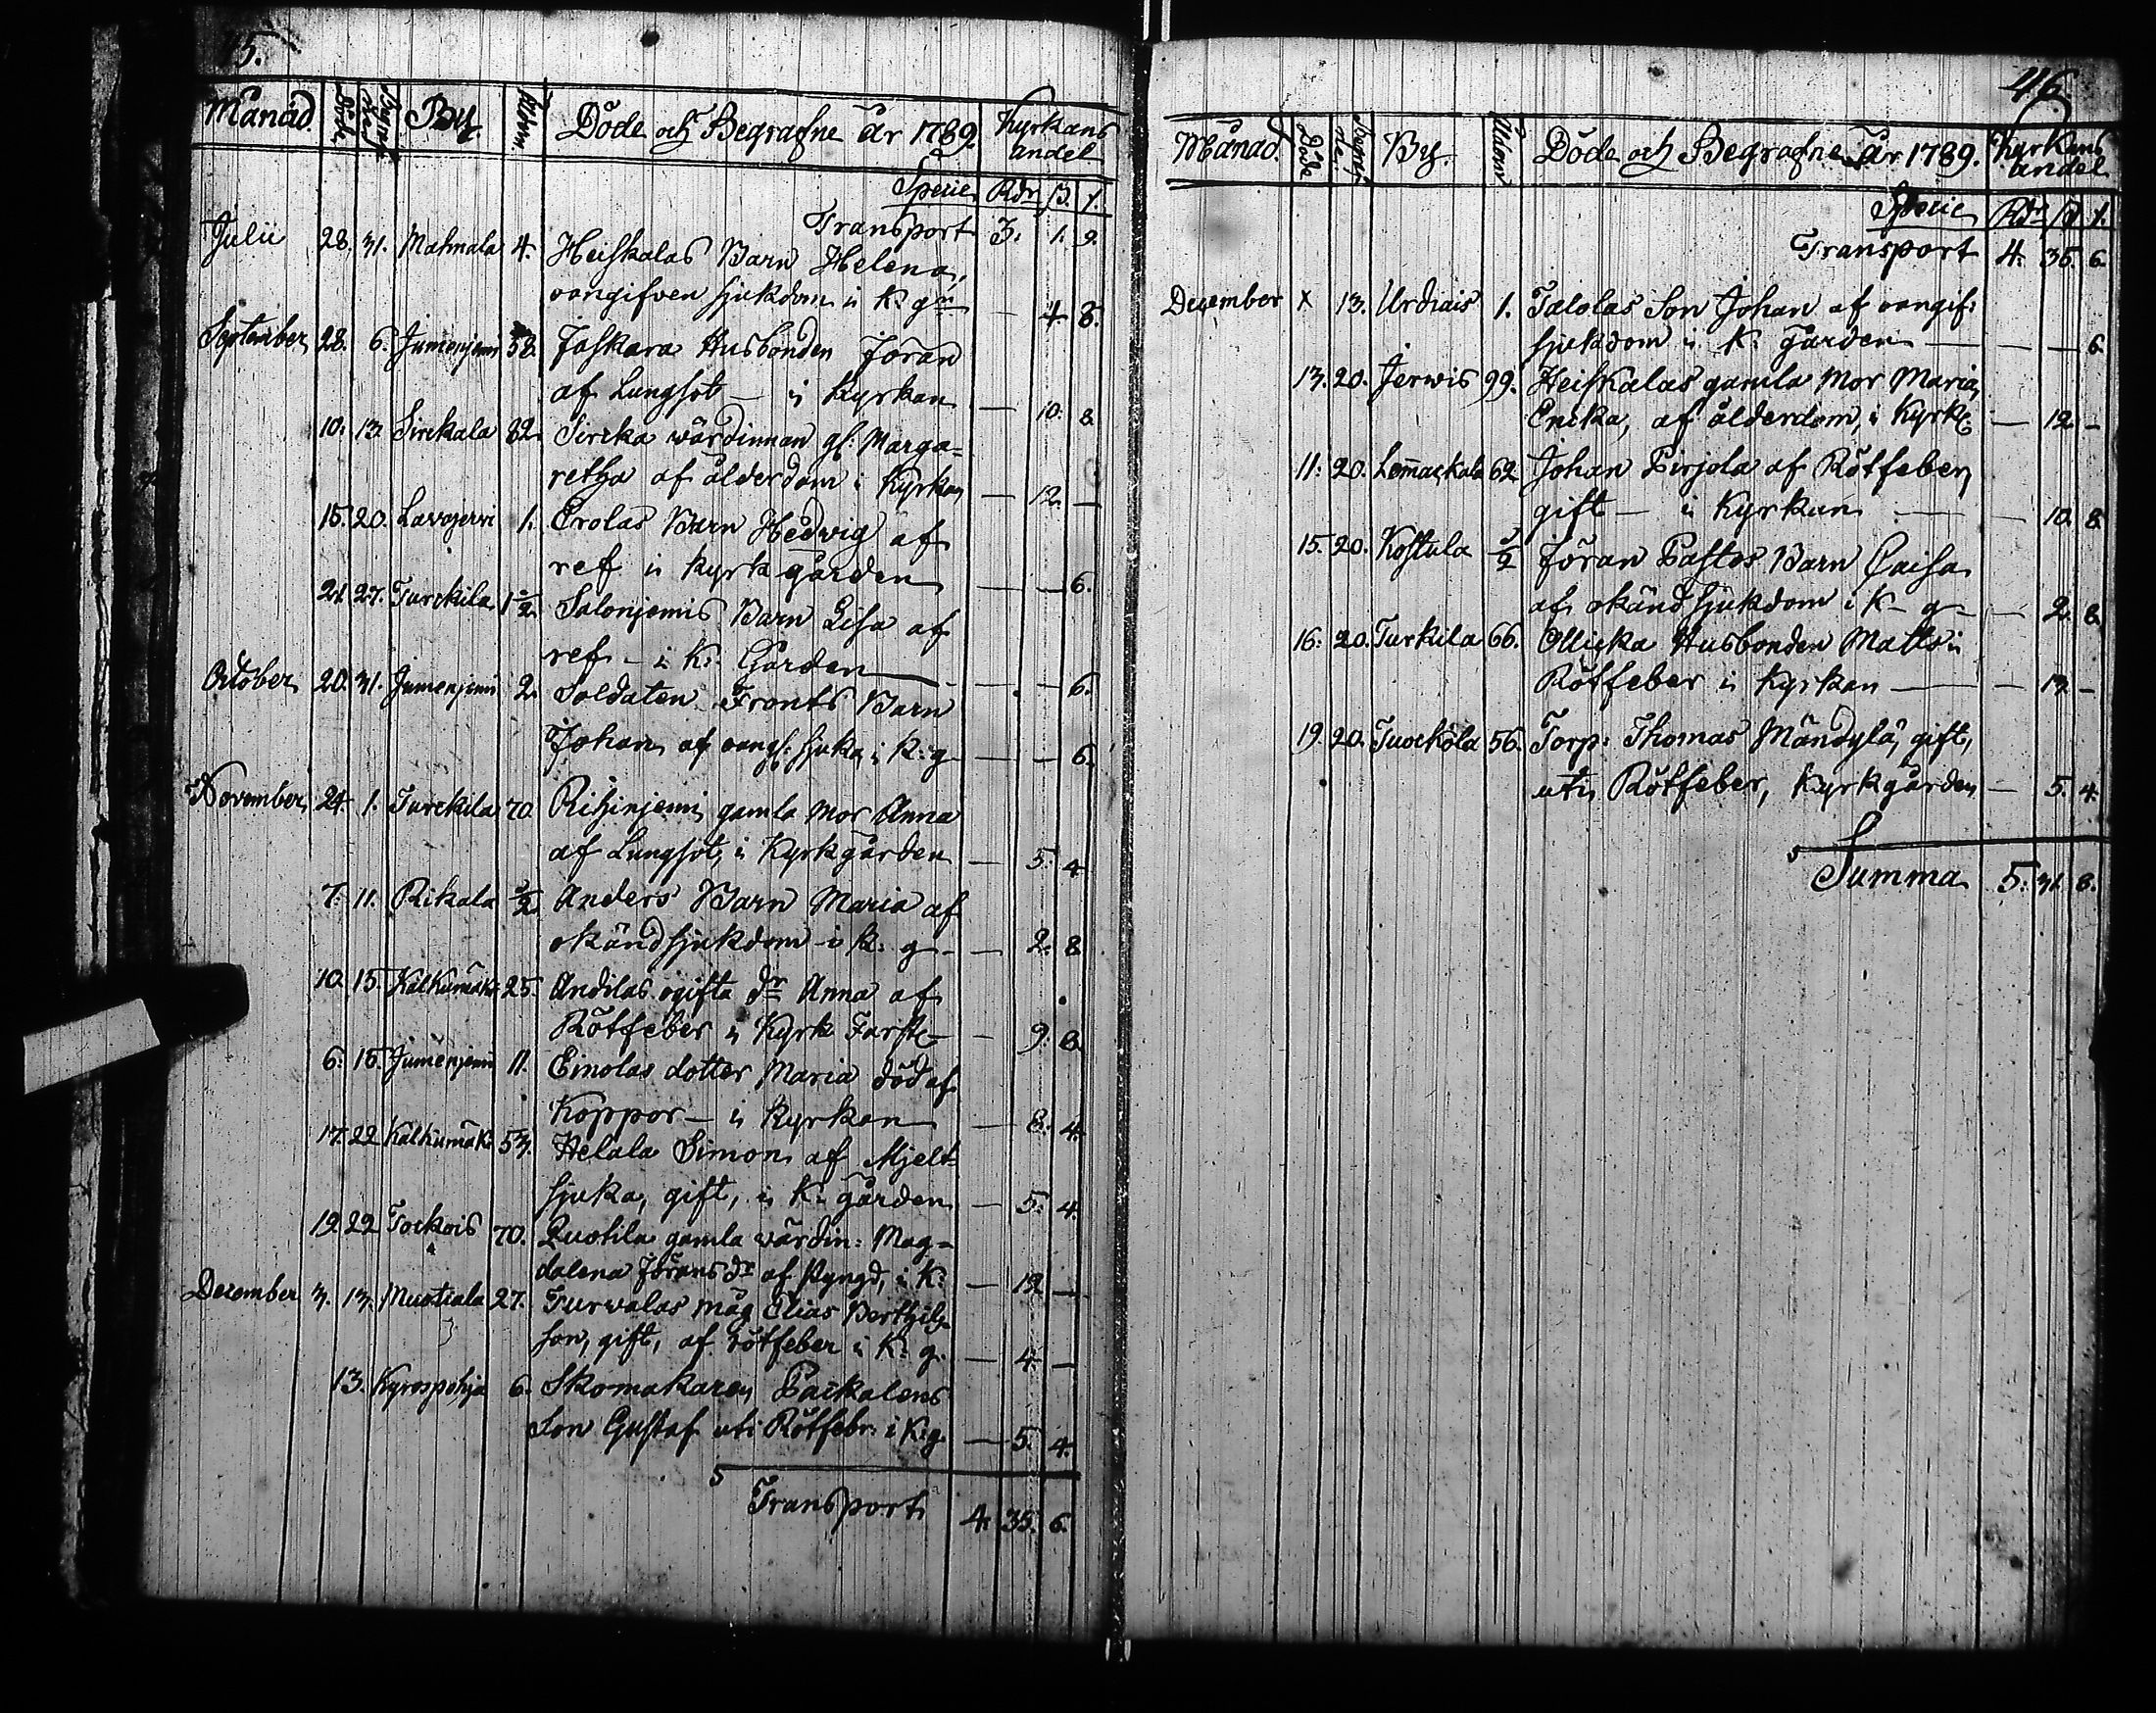 15.
Månad. Döde Begrafne By Ålder. Döde och Begrafne år 1789. Kyrkans andel
Specie Rdr ß. 1.
Transport 3. 1. 9.
Julii 28. 31. Mahnala 4. Heiskalas Barn Helena,
oangifven sjukdom i K. g:n — 4. 8.
September 28. 6. Jumenjemi 58. Jaskara Husbonden Jöran
af Lungsot — i Kyrkan — 10. 8
10. 13. Sirckala 82. Sircka wärdinnan gl: Marga=
retha af ålderdom i Kyrkan — 12. —
15. 20. Lavajerwi 1. Erolas Barn Hedwig af
ref i kyrkgården — — 6.
21. 27. Turckila 1½ Salonjemis Barn Lisa af
ref — i K: Gården — — 6.
October 20. 31. Jumenjemi 2. Soldaten Fronts Barn
Johan af oangf: sjuka i K: g — — 6.
November 24. 1. Turckila 70. Rihinjemi gamla Mor Anna
af Lungsot, i Kyrkgården — 5. 4
7. 11. Rikala ½ Anders Barn Maria af
okänd sjukdom i K. g — 2. 8.
10. 15. Kalkumäki 25. Andilas ogifta dr Anna af
Rötfeber i Kyrk — 9. 8.
6. 15. Jumenjemi 11. Einolas dotter Maria död af
Koppor — i Kyrkan — 8. 4.
17. 22 Kalkumäki 53. Helala Simon af Mjelt=
sjuka, gift, i K. gården — 5. 4.
12. 22 Tockois 70. Quotila gamla wärdin: Mag=
dalena Jörans dr af Håll och Styng, i K: — 12 —
December 3. 13. Muotiala 27. Turwalas Måg Elias Berthils=
son, gift, af rötfeber i K. g. — 4. —
13. Kyrospohja 6. Skomakaren Packalens
Son Gustaf uti Rötfebr: i K:g. — 5. 4.
Transport 4. 35. 6.
46
Månad. Döde Begrafne. By. Ålder Döde och Begrafne År 1789. Kyrkans andel
Specie Rdr ß 1.
Transport 4. 35. 6.
December x 13. Urdiais 1. Talolas Son Johan af oangif:
sjukdom i K: Gården — — — 6.
13. 20. Jerwis 99. Heiskalas gamla Mor Maria
Ericka, af ålderdom, i Kyrk: — 12. —
11. 20. Lemackala 62. Johan Pirjola af Rötfeber,
gift — i Kyrkan — — 10. 8.
15. 20. Kostula ½ Jöran Pastos Barn Caisa
af okänd sjukdom i K — g — 2. 8.
16. 20. Turkila 66. Ollicka Husbonden Matts i
Rötfeber i Kyrkan — — 12. —
19. 20. Tuockola 56. Torp: Thomas Mändylä, gift,
uti Rötfeber, Kyrkgården — 5. 4.
Summa 5. 31. 8.